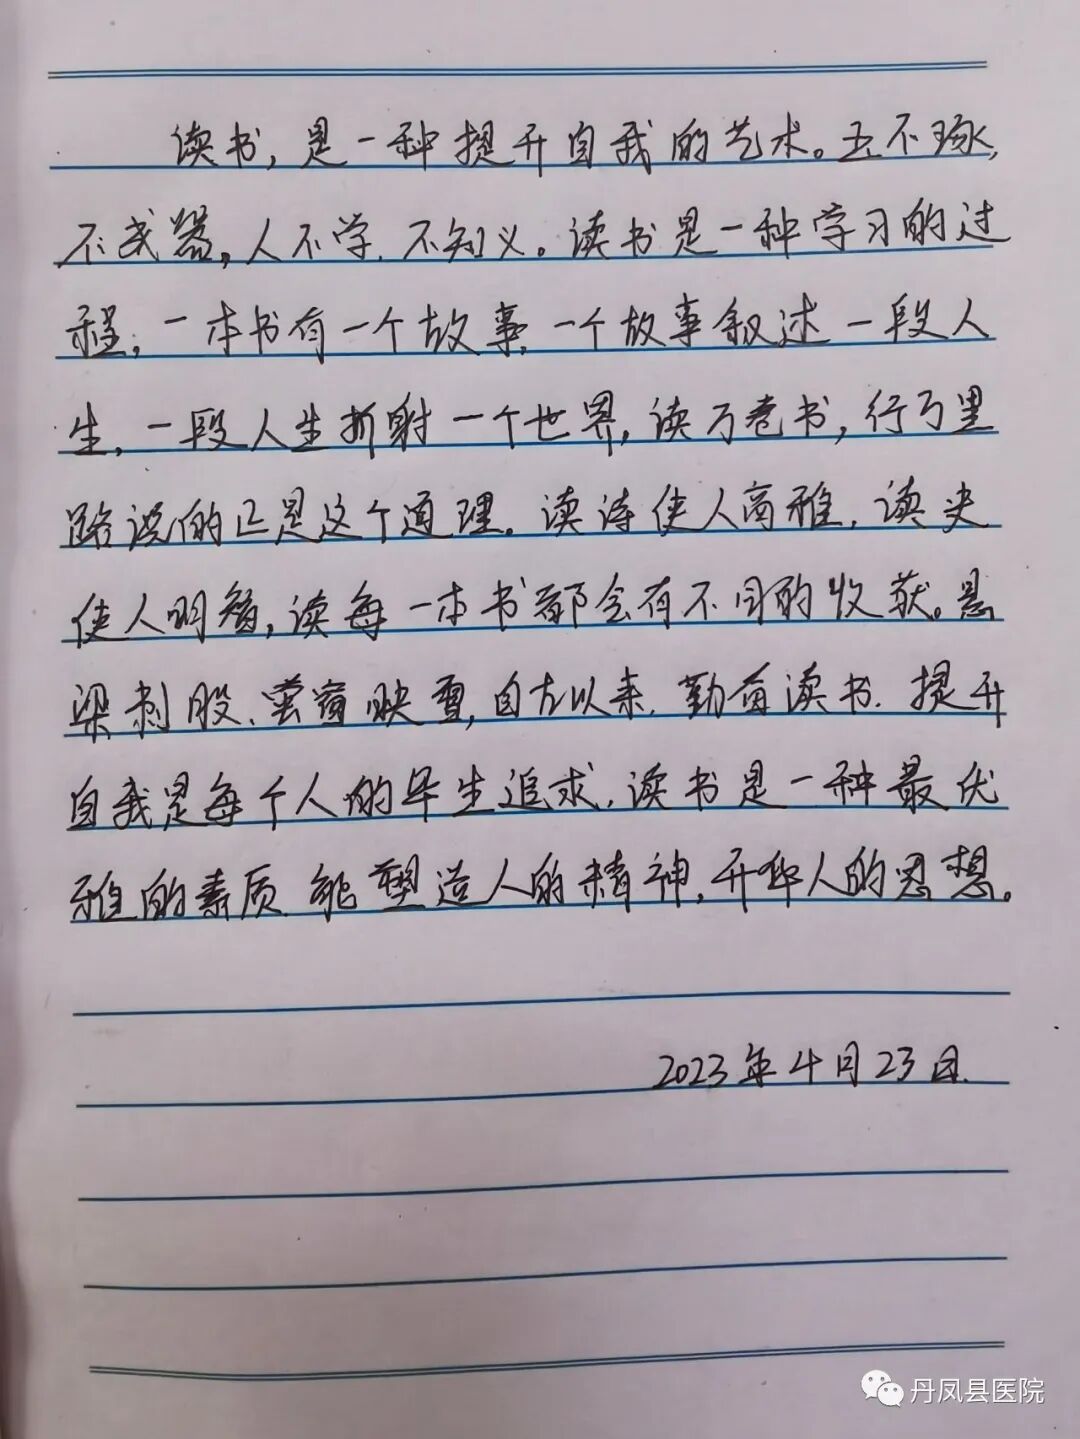 读书，是一种提升自我的艺术。玉不琢，
不成器，人不学，不知义。读书是一种学习的过
程，一本书有一个故事，一个故事叙述一段人
生，一段人生折射一个世界，读万卷书，行万里
路说的正是这个道理。读诗使人高雅，读史
使人明智，读每一本书都会有不同的收获。悬
梁刺股、萤窗映雪，自古以来，勤奋读书，提升
自我是每个人的毕生追求，读书是一种最优
雅的素质，能塑造人的精神，升华人的思想。
2023年4月23日.
丹凤县医院